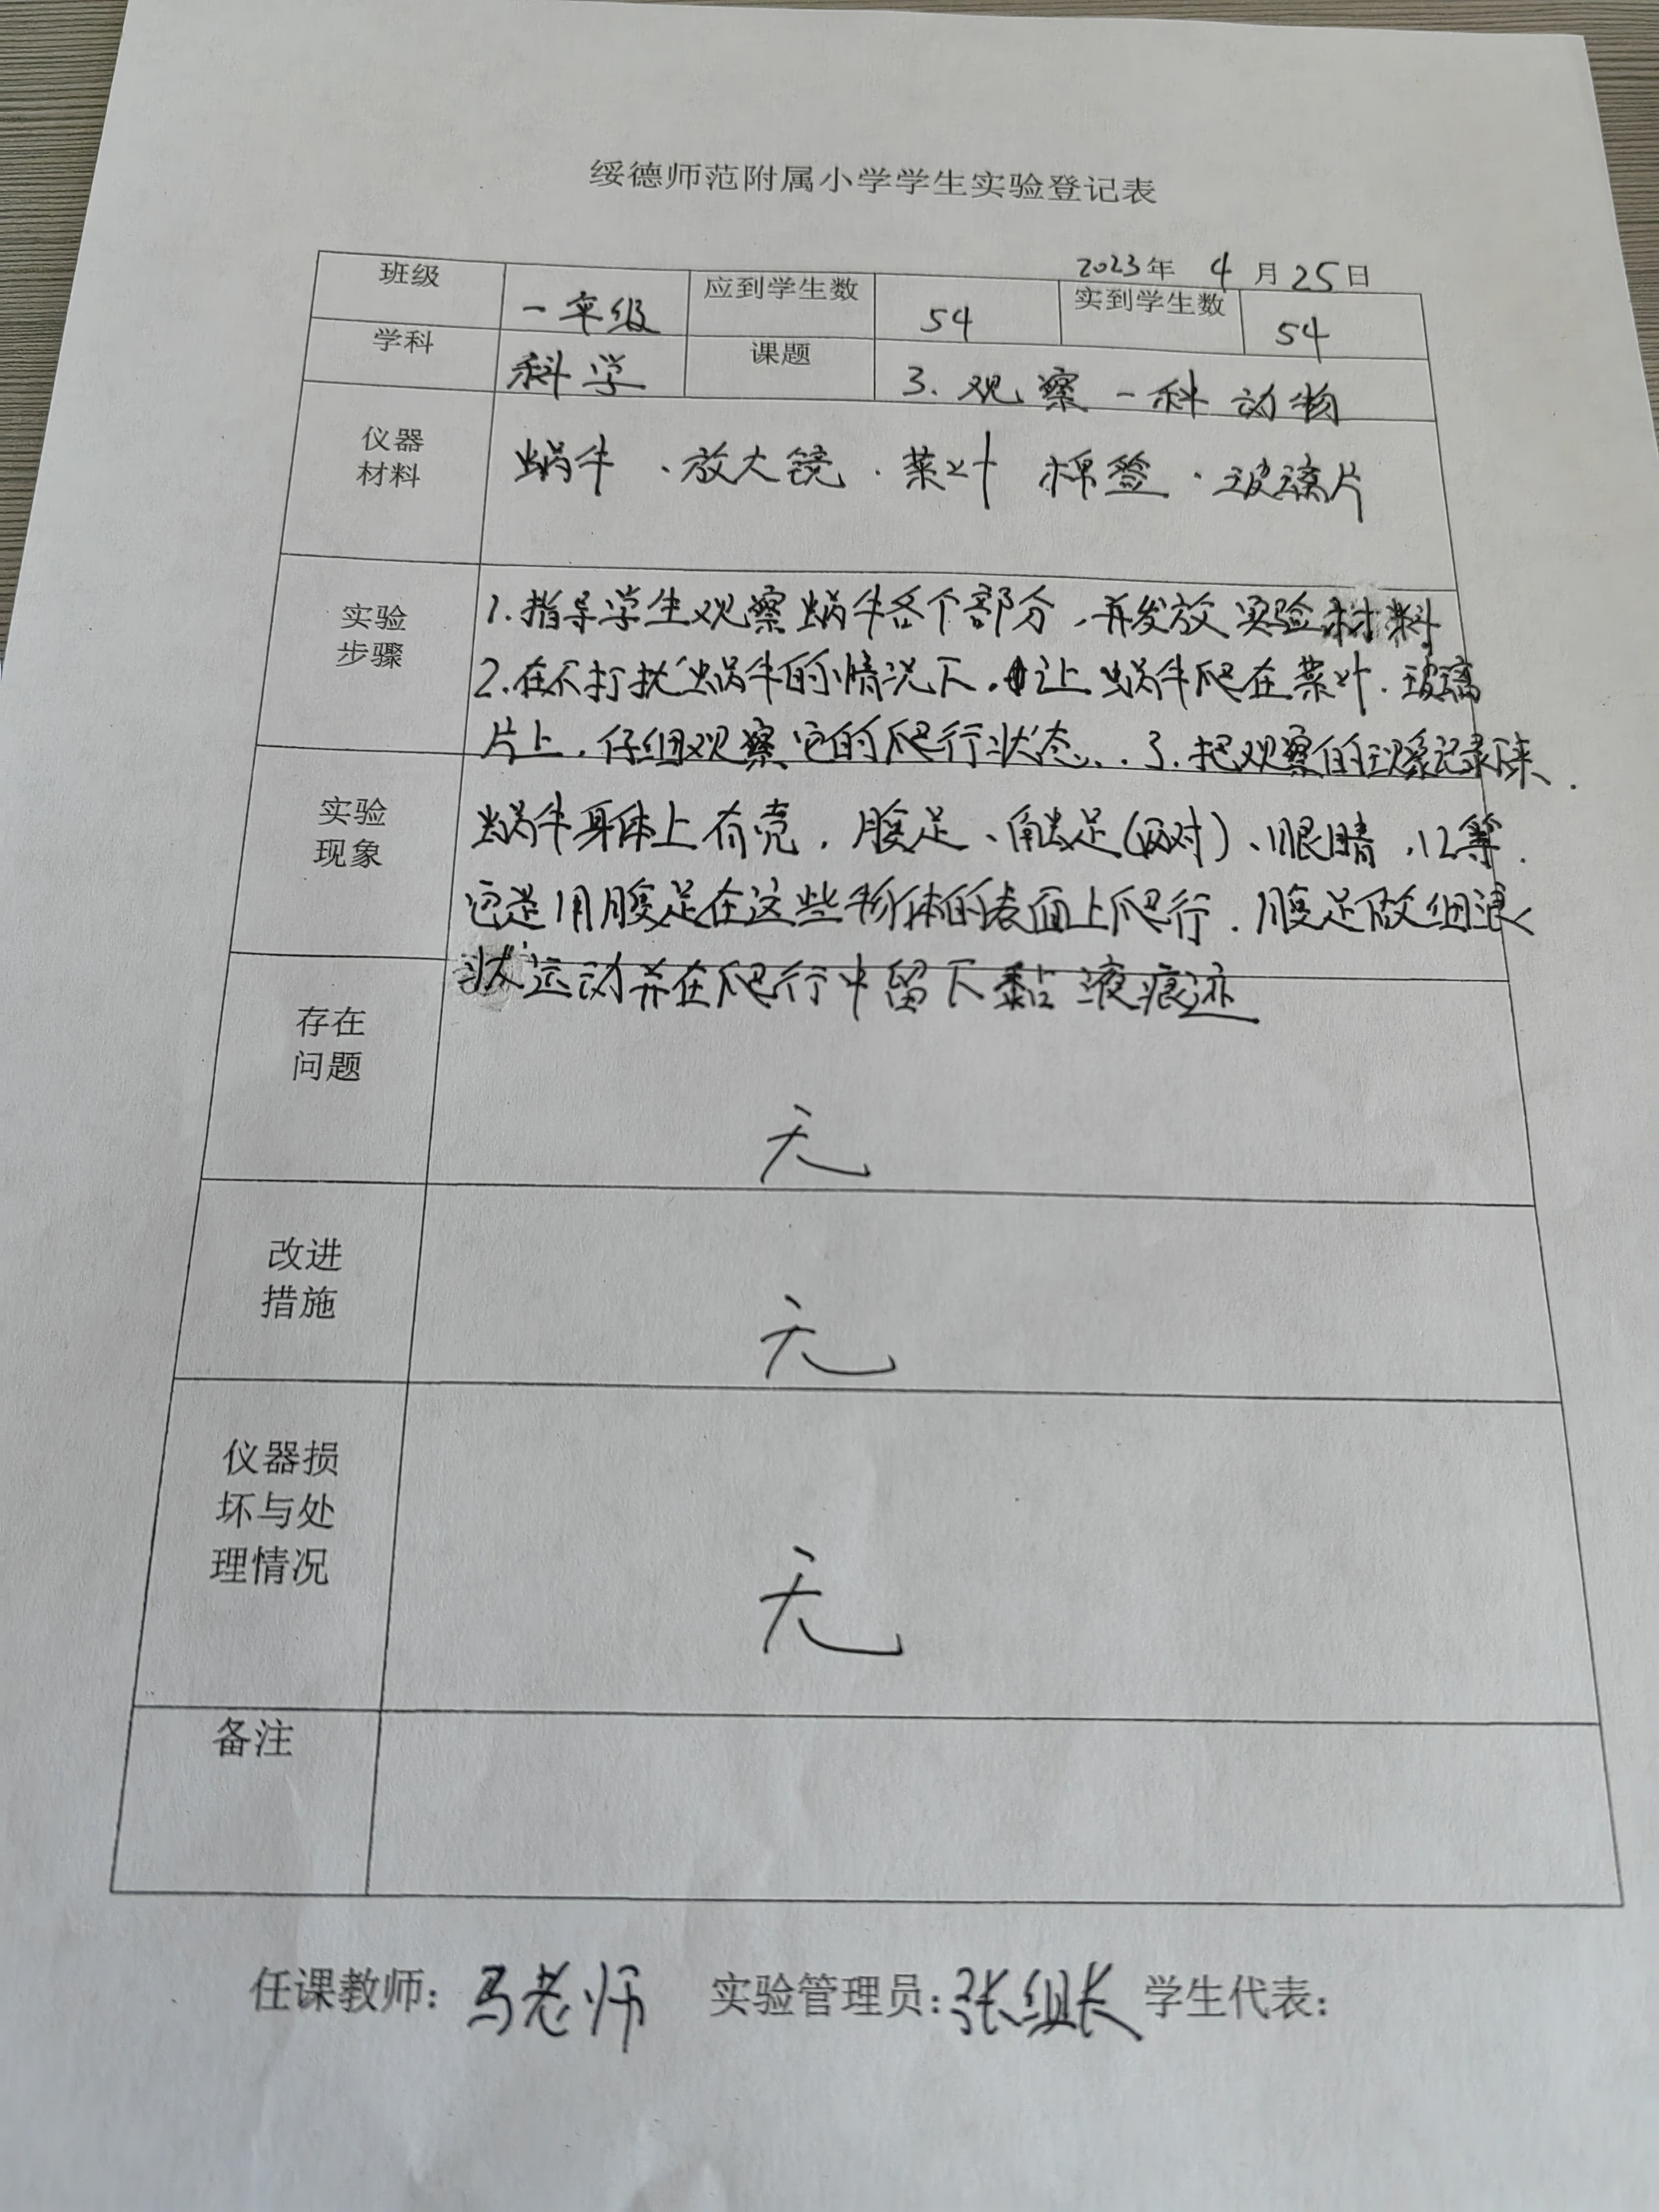 绥德师范附属小学学生实验登记表
2023年 4 月 25 日
班级 一年级 应到学生数 54 实到学生数 54
学科 科学 课题 3. 观察一种动物
仪器
材料
蜗牛、放大镜、菜叶 棉签、玻璃片
实验
步骤
1.指导学生观察蜗牛各个部分,再发放实验材料
2.在不打扰蜗牛的情况下,让蜗牛爬在菜叶、玻璃
片上,仔细观察它的爬行状态... 3.把观察的现象记录下来.
实验
现象
蜗牛身体上有壳,腹足、触足(两对)、眼睛,口等.
它是用腹足在这些物体的表面上爬行.腹足做细浪
状运动并在爬行中留下黏液痕迹
存在
问题
无
改进
措施
无
仪器损
坏与处
理情况
无
备注
任课教师:马老师 实验管理员:张组长 学生代表: